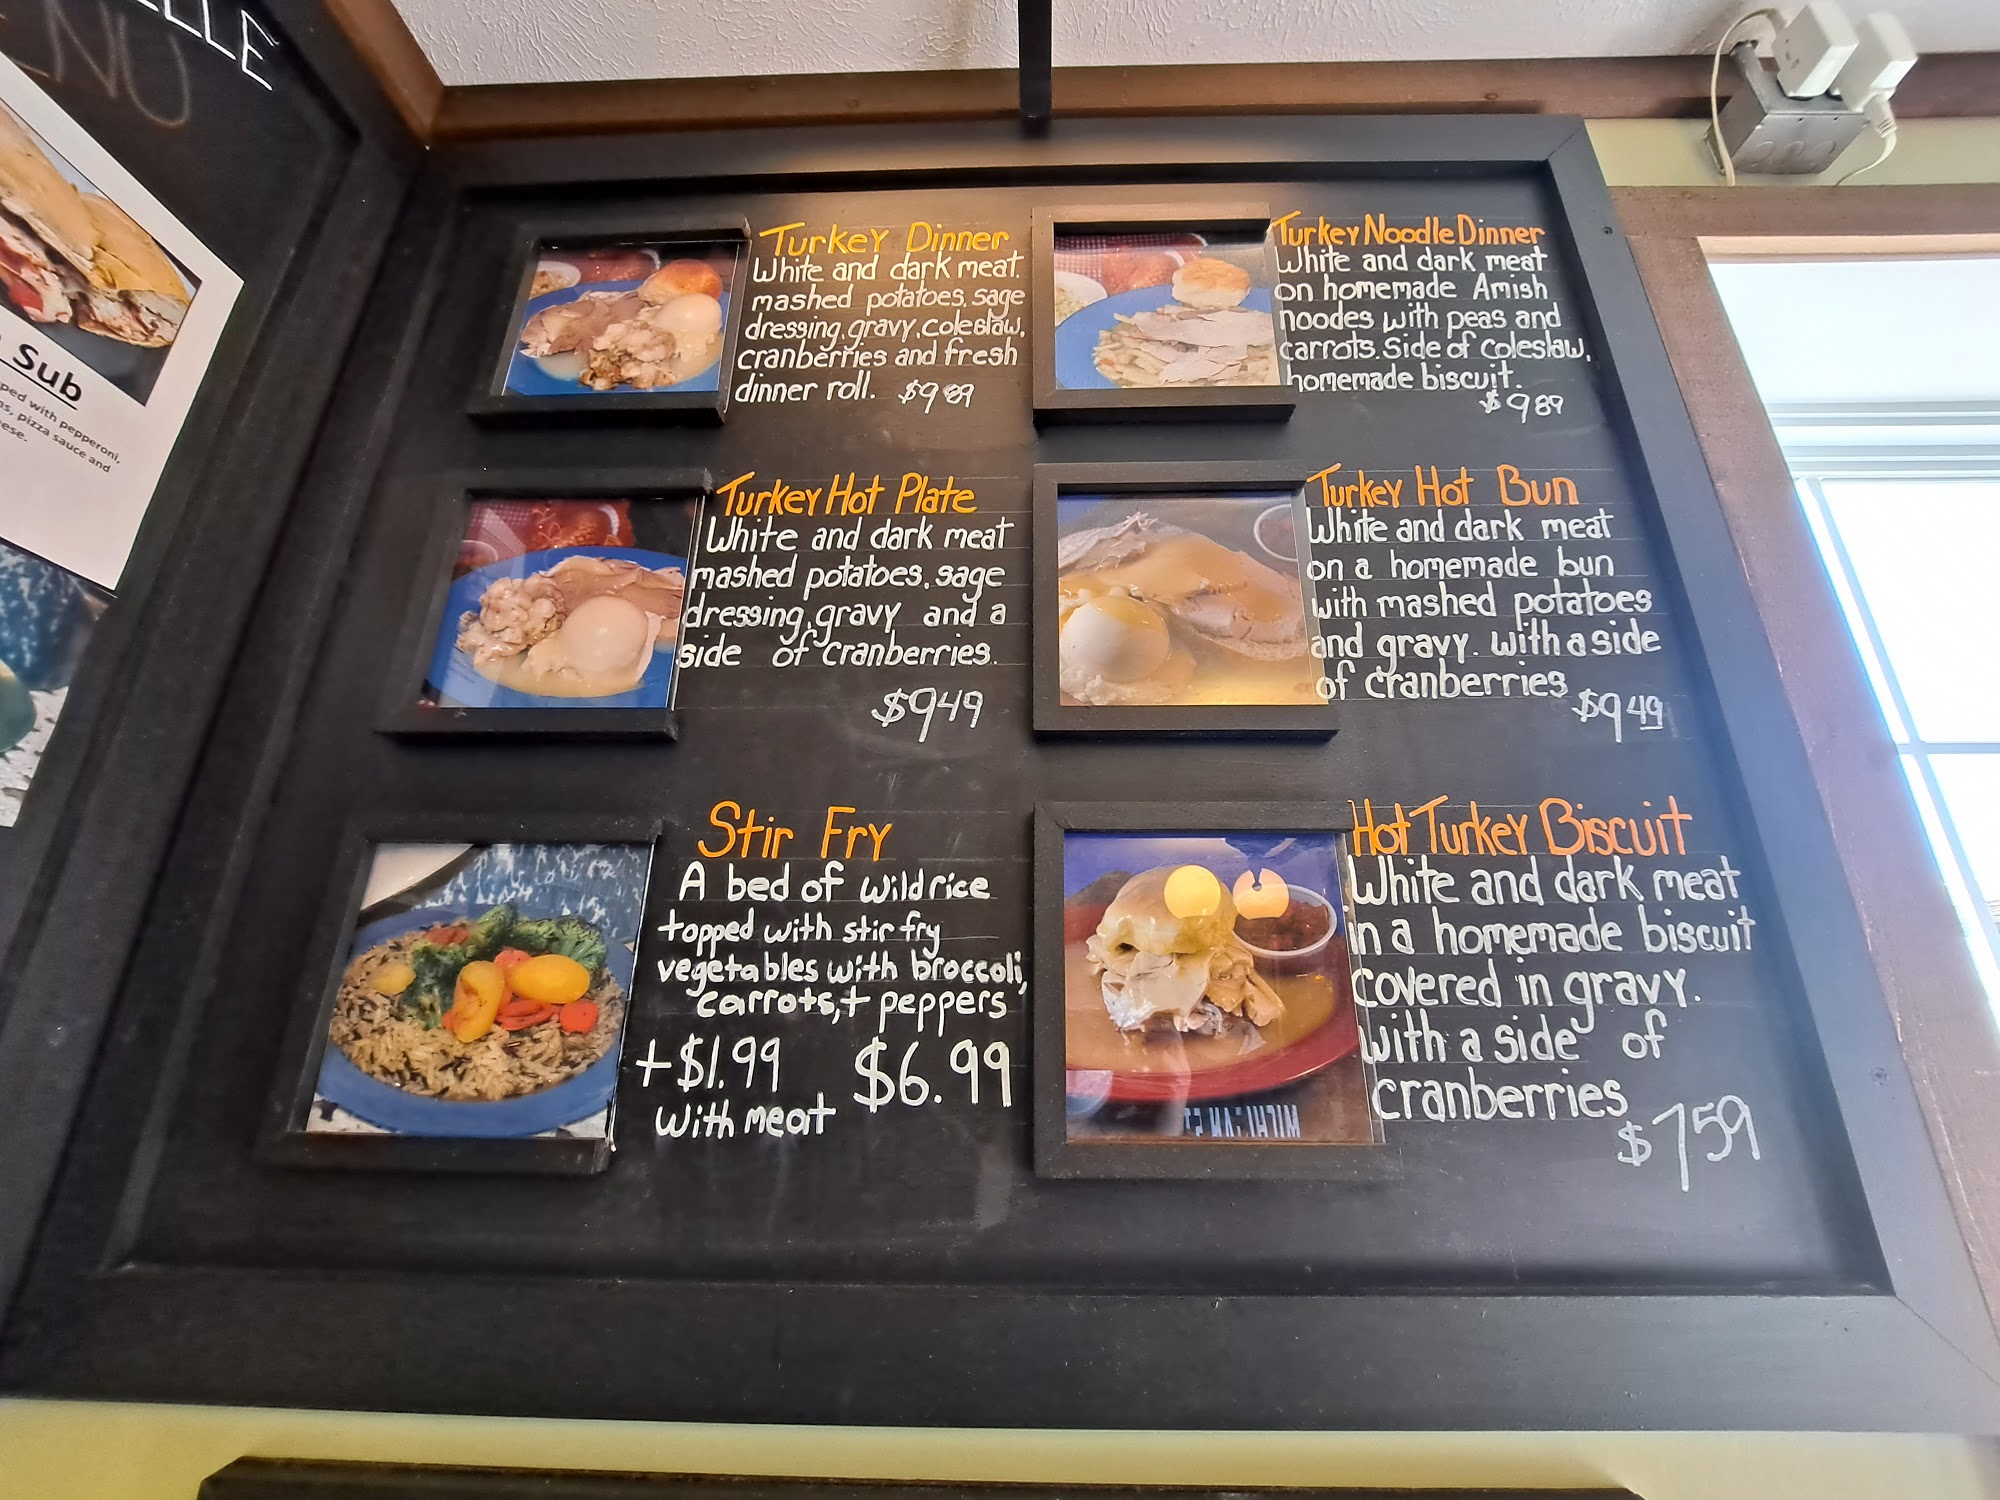 Sub
pped with pepperoni,
s, pizza sauce and
ese.
Turkey Dinner
White and dark meat.
mashed potatoes, sage
dressing, gravy, coleslaw,
cranberries and fresh
dinner roll. $9 89
Turkey Noodle Dinner
White and dark meat
on homemade Amish
noodes with peas and
carrots. Side of coleslaw,
homemade biscuit.
$9 89
Turkey Hot Plate
White and dark meat
mashed potatoes, sage
dressing, gravy and a
side of cranberries.
$9 49
Turkey Hot Bun
White and dark meat
on a homemade bun
with mashed potatoes
and gravy. with a side
of cranberries
$9 49
Stir Fry
A bed of wild rice
topped with stir fry
vegetables with broccoli,
carrots, + peppers
+$1.99 $6.99
with meat
Hot Turkey Biscuit
White and dark meat
in a homemade biscuit
covered in gravy.
with a side of
cranberries
$7 59